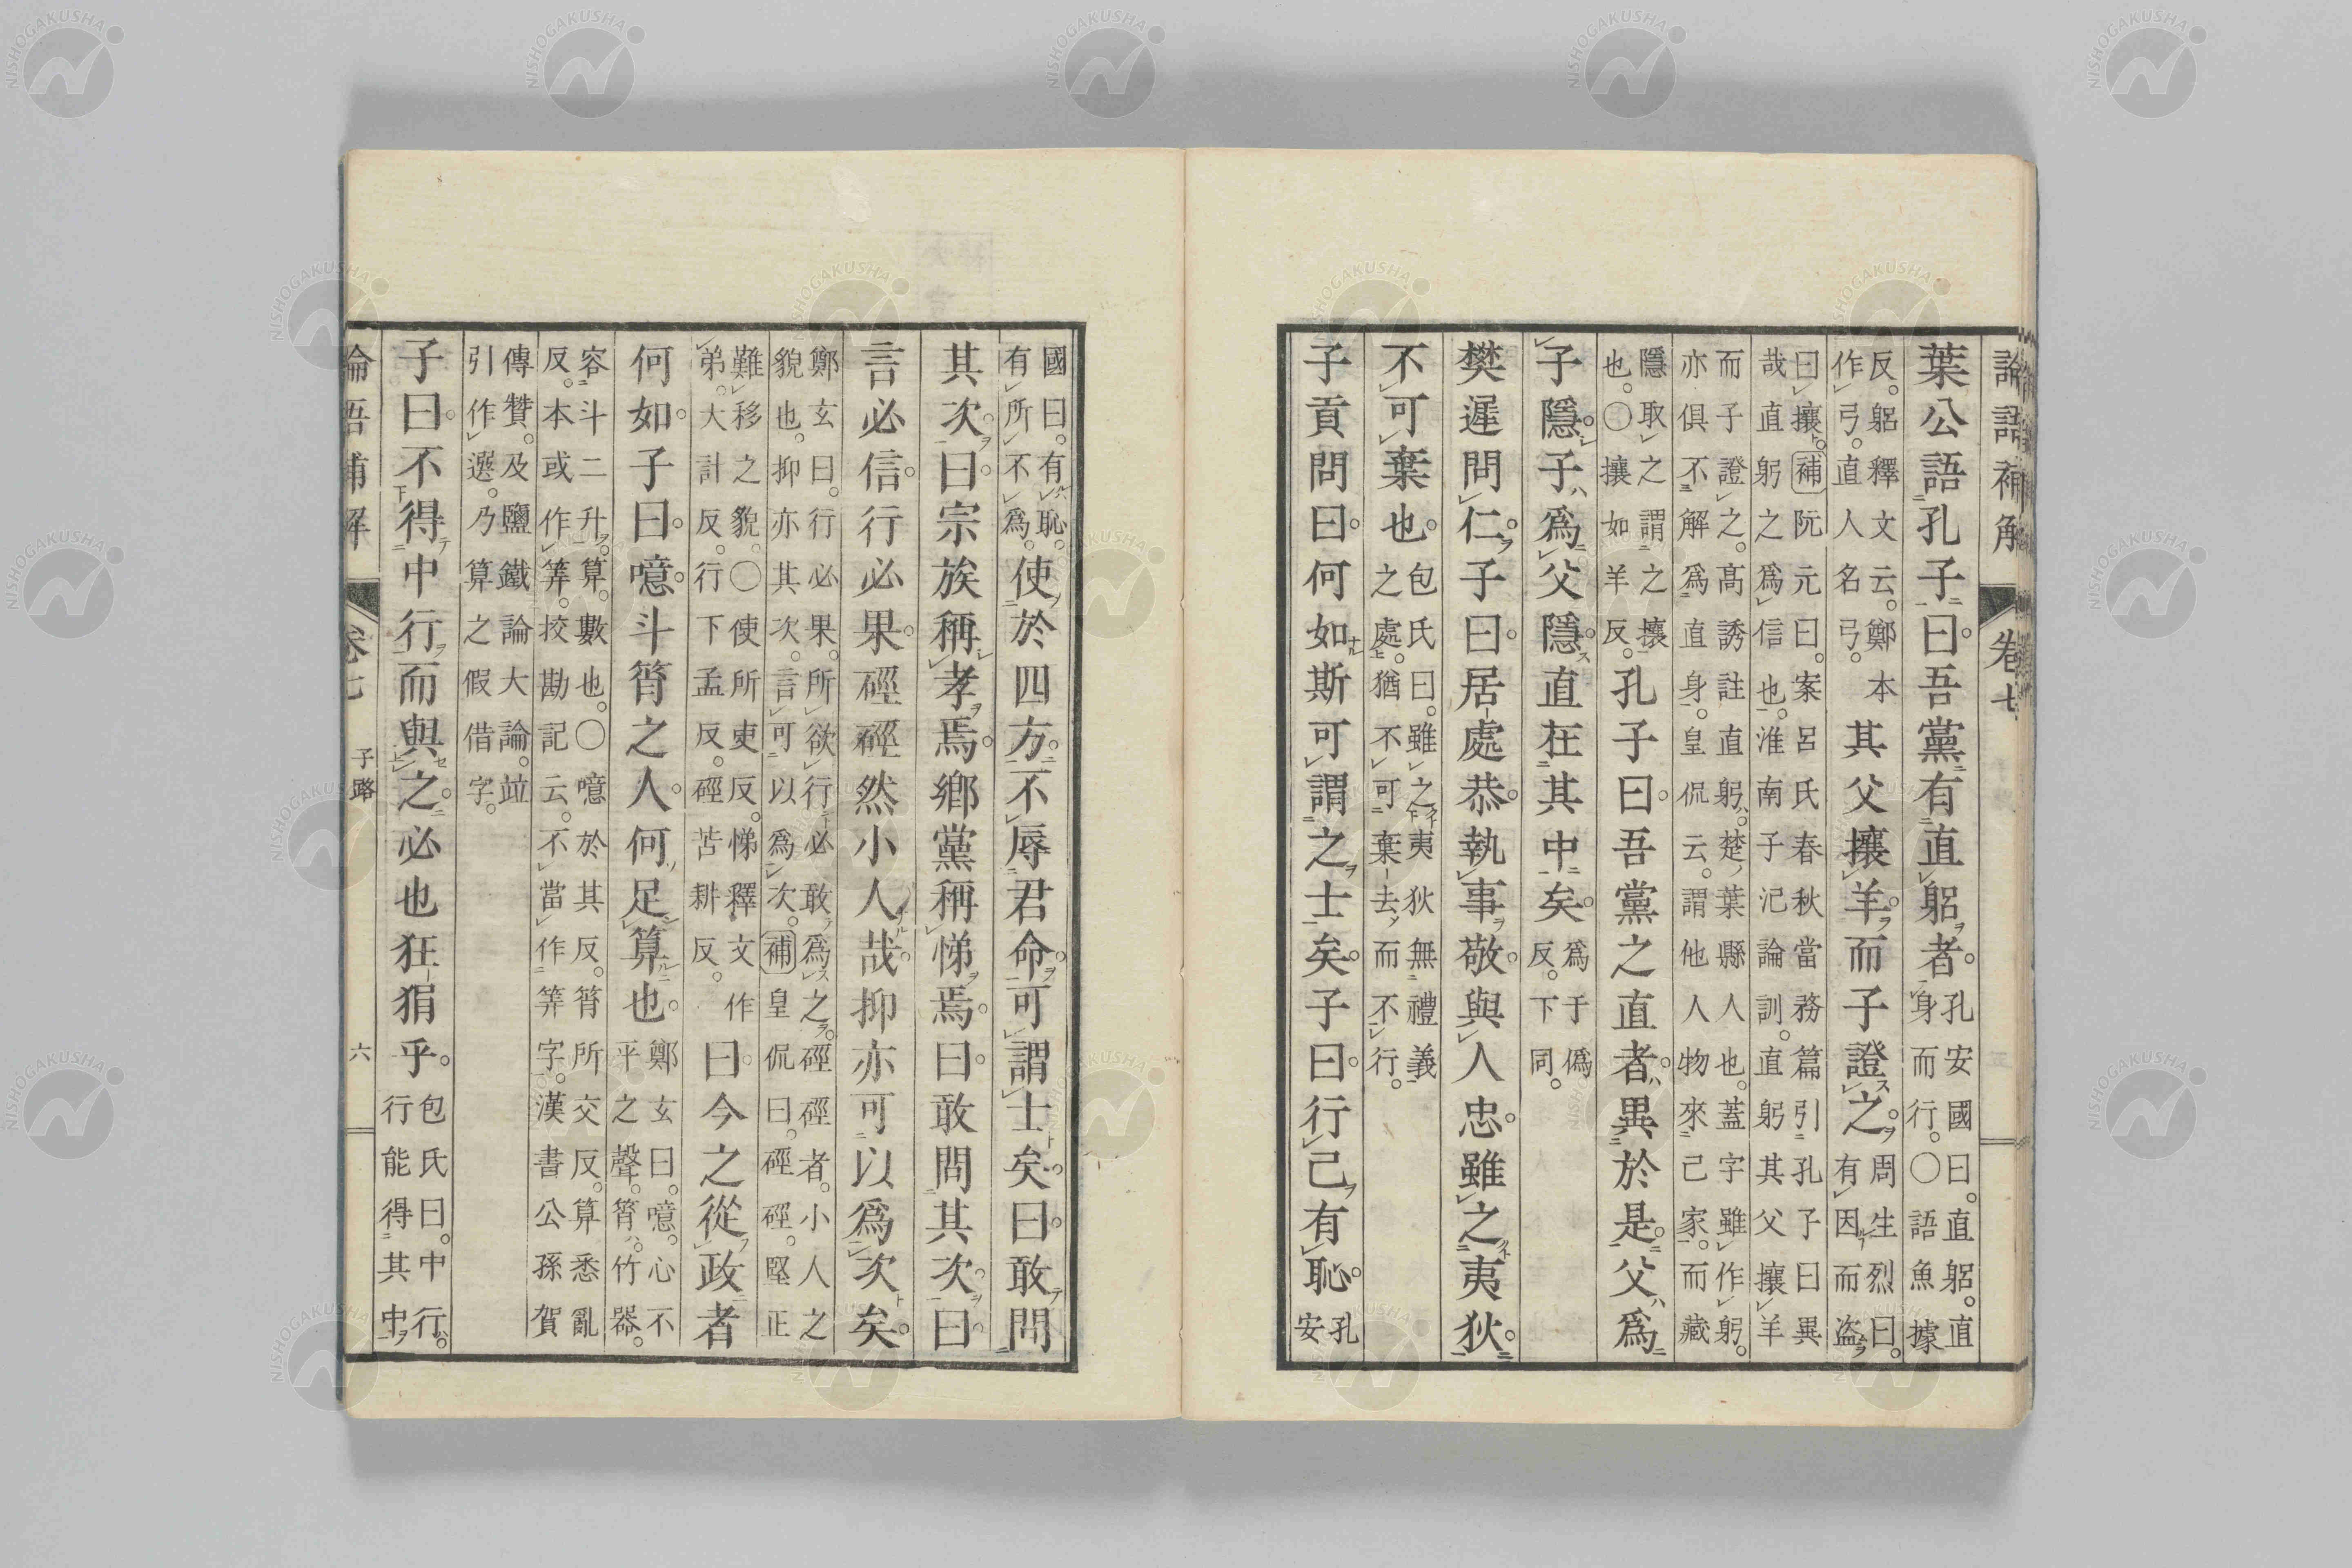 論語補解　卷七
葉公語孔子曰。吾黨有直躳者。孔安國曰。直躳。直
身而行。〇語魚據
反。躳釋文云。鄭本
作弓。直人名弓。其父攘羊。而子證之。周生烈曰。
有因而盗
曰攘。補阮元曰。案呂氏春秋當務篇引孔子曰異
哉直躬之爲信也。淮南子氾論訓。直躬其父攘羊
而子證之。高誘註直躬。楚葉縣人也。蓋字雖作躬。
亦俱不解爲直身。皇侃云。謂他人物來己家。而藏
隱取之謂之攘
也。〇攘如羊反。孔子曰。吾黨之直者。異於是。父爲
子隱。子爲父隱。直在其中矣。爲于僞
反。下同。
樊遲問仁。子曰。居處恭。執事敬。與人忠。雖之夷狄。
不可棄也。包氏曰。雖之夷狄無禮義
之處。猶不可棄去而不行。
子貢問曰。何如斯可謂之士矣。子曰。行己有恥。孔
安
國曰。有恥。
有所不爲。使於四方。不辱君命。可謂士矣。曰。敢問
其次。曰。宗族稱孝焉。鄉黨稱悌焉。曰。敢問其次。曰。
言必信。行必果。硜硜然小人哉。抑亦可以爲次矣。
鄭玄曰。行必果。所欲行必敢爲之。硜硜者。小人之
貌也。抑亦其次。言可以爲次。補皇侃曰。硜硜。堅正
難移之貌。〇使所吏反。悌釋文作
弟。大計反。行下孟反。硜苦耕反。曰。今之從政者
何如。子曰。噫。斗筲之人。何足算也。鄭玄曰。噫。心不
平之聲。筲。竹器。
容斗二升。算。數也。〇噫於其反。筲所交反。算悉亂
反。本或作筭。挍勘記云。不當作筭字。漢書公孫賀
傳贊。及鹽鐵論大論。竝
引作選。乃算之假借字。
子曰。不得中行而與之。必也狂狷乎。包氏曰。中行。
行能得其中
論語補解　卷七　子路　六
NISHOGAKUSHA